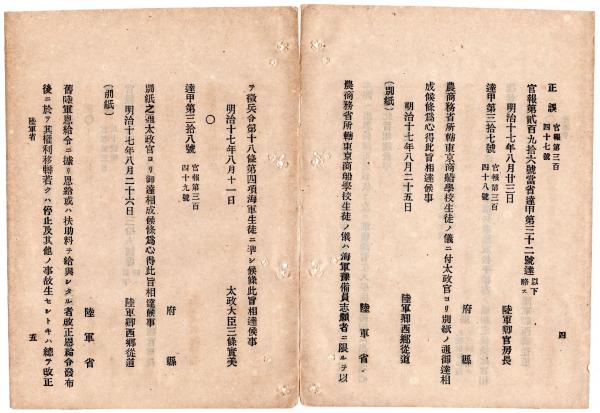 正誤 官報第三百四十七號
官報第貳百九拾六號當省達甲第三十二號達 以下略ス
明治十七年八月廿三日
陸軍卿官房長
達甲第三拾七號 官報第三百四十八號
府縣
農商務省所轄東京商船學校生徒ノ儀ニ付太政官ヨリ別紙ノ通御達相
成候條爲心得此旨相達候事
明治十七年八月二十五日
陸軍卿西鄉從道
(別紙)
陸軍省
農商務省所轄東京商船學校生徒ノ儀ハ海軍豫備員志願者ニ限ルヲ以
四
ヲ徵兵令第十八條第四項海軍生徒ニ準シ候條此旨相達候事
明治十七年八月十一日
太政大臣三條實美
○
達甲第三拾八號 官報第三百四十九號
府縣
別紙之通太政官ヨリ御達相成候條爲心得此旨相達候事
明治十七年八月二十六日
陸軍卿西鄉從道
(別紙)
陸軍省
舊陸軍恩給令ニ據リ恩給或ハ扶助料ヲ給與シタル者改正恩給令發布
後ニ於テ其權利移轉若クハ停止及其他ノ事故生セシトキハ總テ改正
陸軍省
五